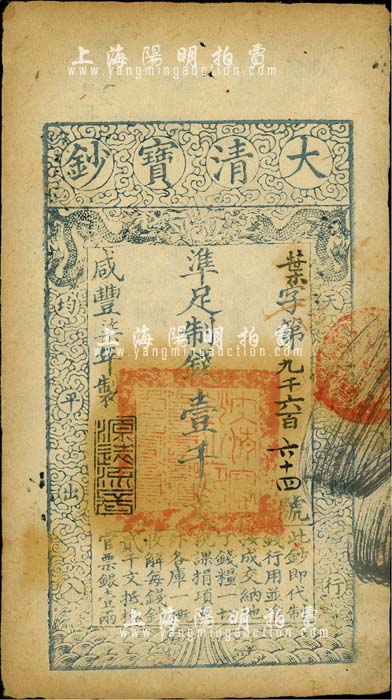 上海陽明拍賣
www.yangmingauction.com
大清寶鈔
葉字第九千六百六十四號
準足制錢壹千文
咸豐柒年製
源遠流長
天下
行
均平出入
此鈔即代制
錢行用並
成交納地
錢糧一切
課捐項
各庫一
收解每錢鈔
貳千文抵
官票銀壹兩
上海陽明拍賣
www.yangmingauction.com
上海陽明拍賣
www.yangmingauction.com